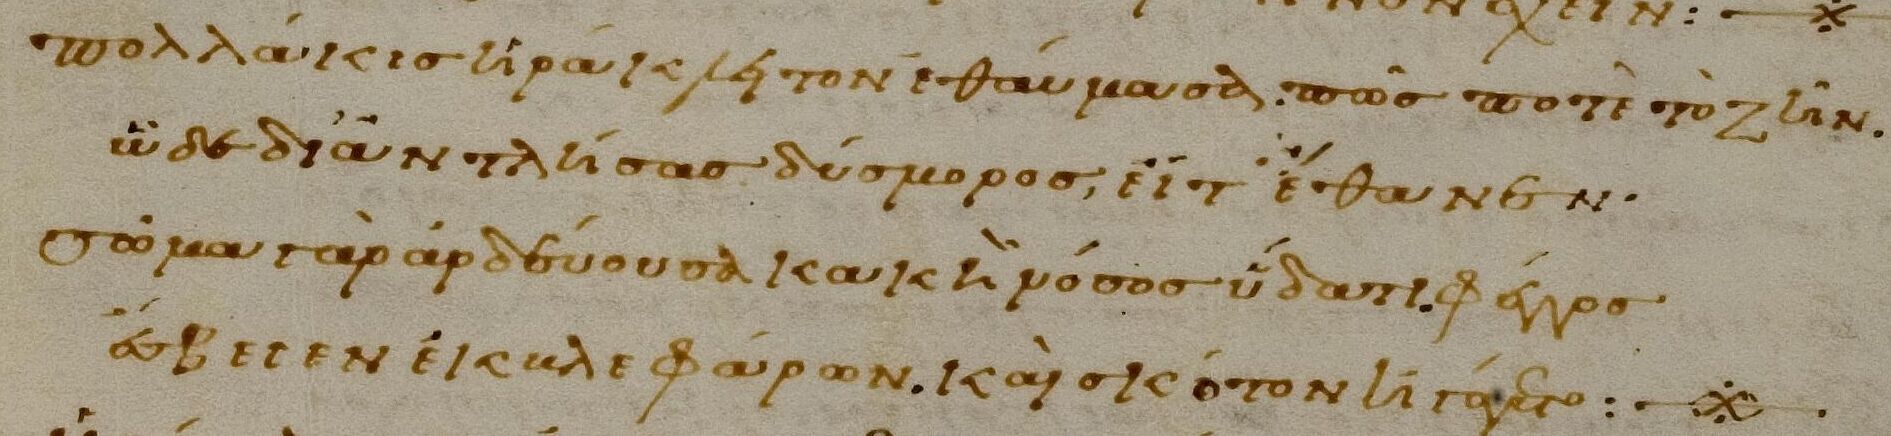 πολλάκις ἡράκλητον ἐθαύμασα. πῶς ποτὲ τὸ ζῆν.
ὧδε διἀντλήσας δύσμορος, εἶτ' ἔθανεν.
σῶμα γὰρ ἀρδεύουσα κακὴ νόσος ὕδατι. φέγγος
ἔσβεσεν ἐκ βλεφάρων. καὶ σκότον ἠγάγετο :